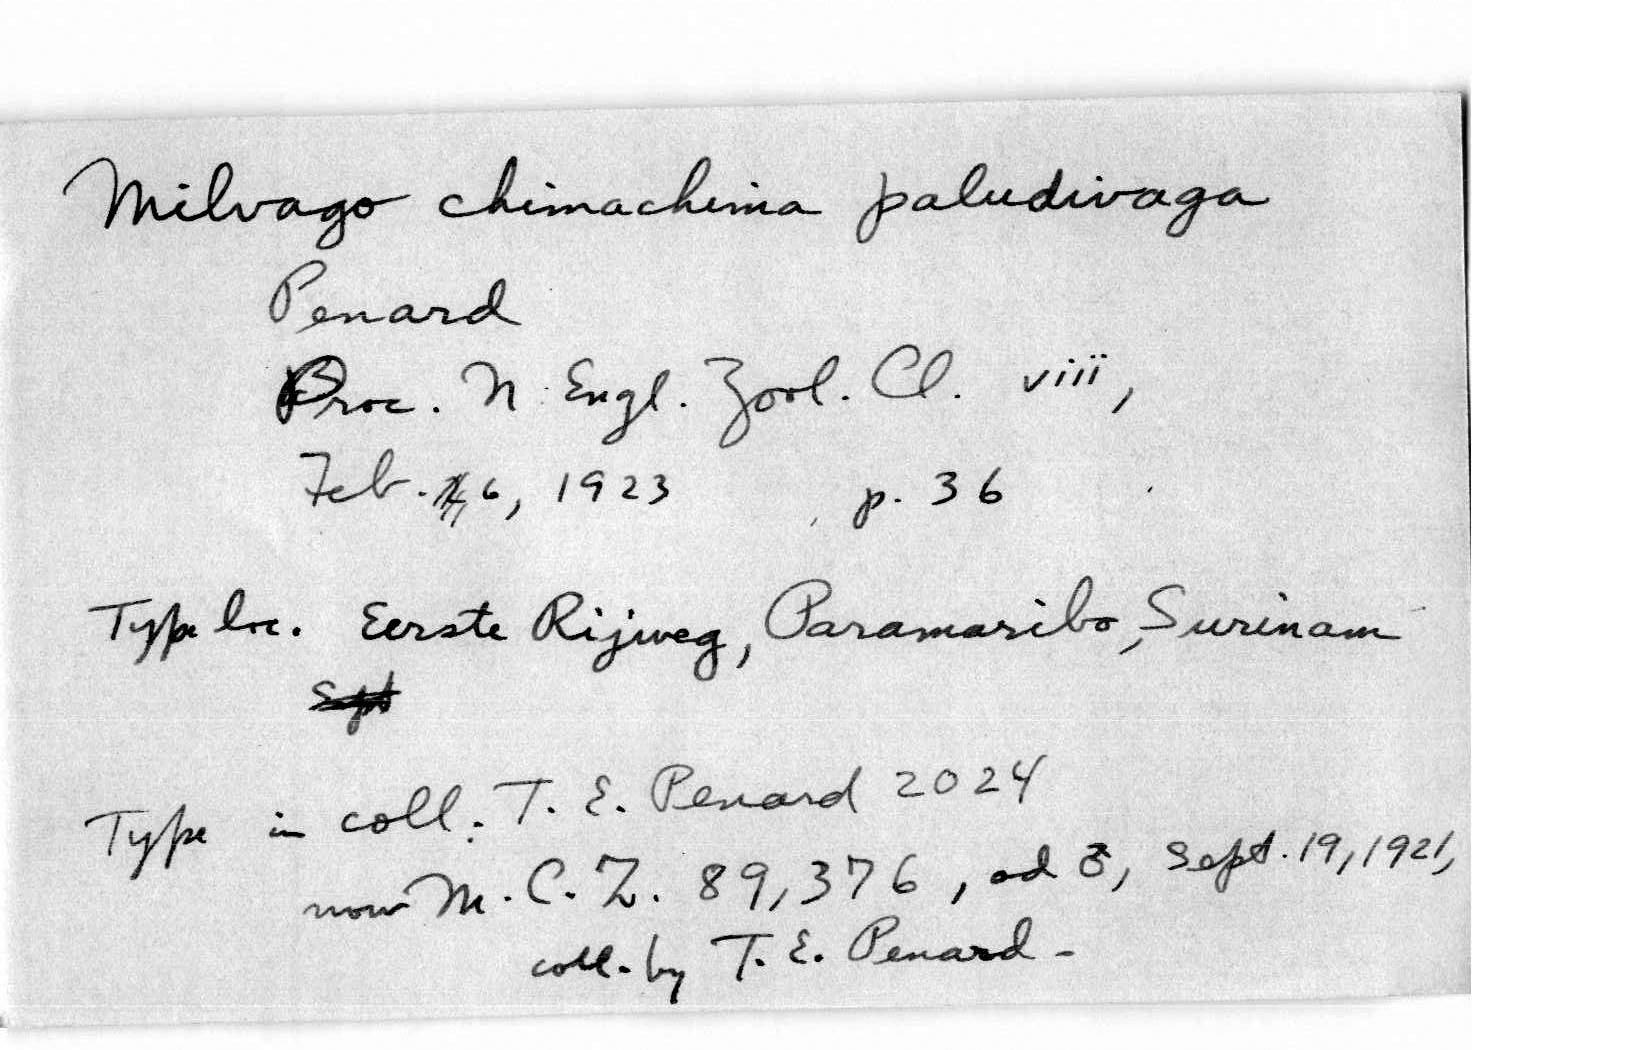 Milvago chimachima paludivaga
Penard
Proc. N. Engl. Zool. Cl. viii,
Feb. 6, 1923 p. 36
Type loc. Eerste Rijweg, Paramaribo, Surinam
Sept
Type in coll. T. E. Penard 2024
now M. C. Z. 89,376, ad ♂, Sept. 19, 1921,
coll. by T. E. Penard -